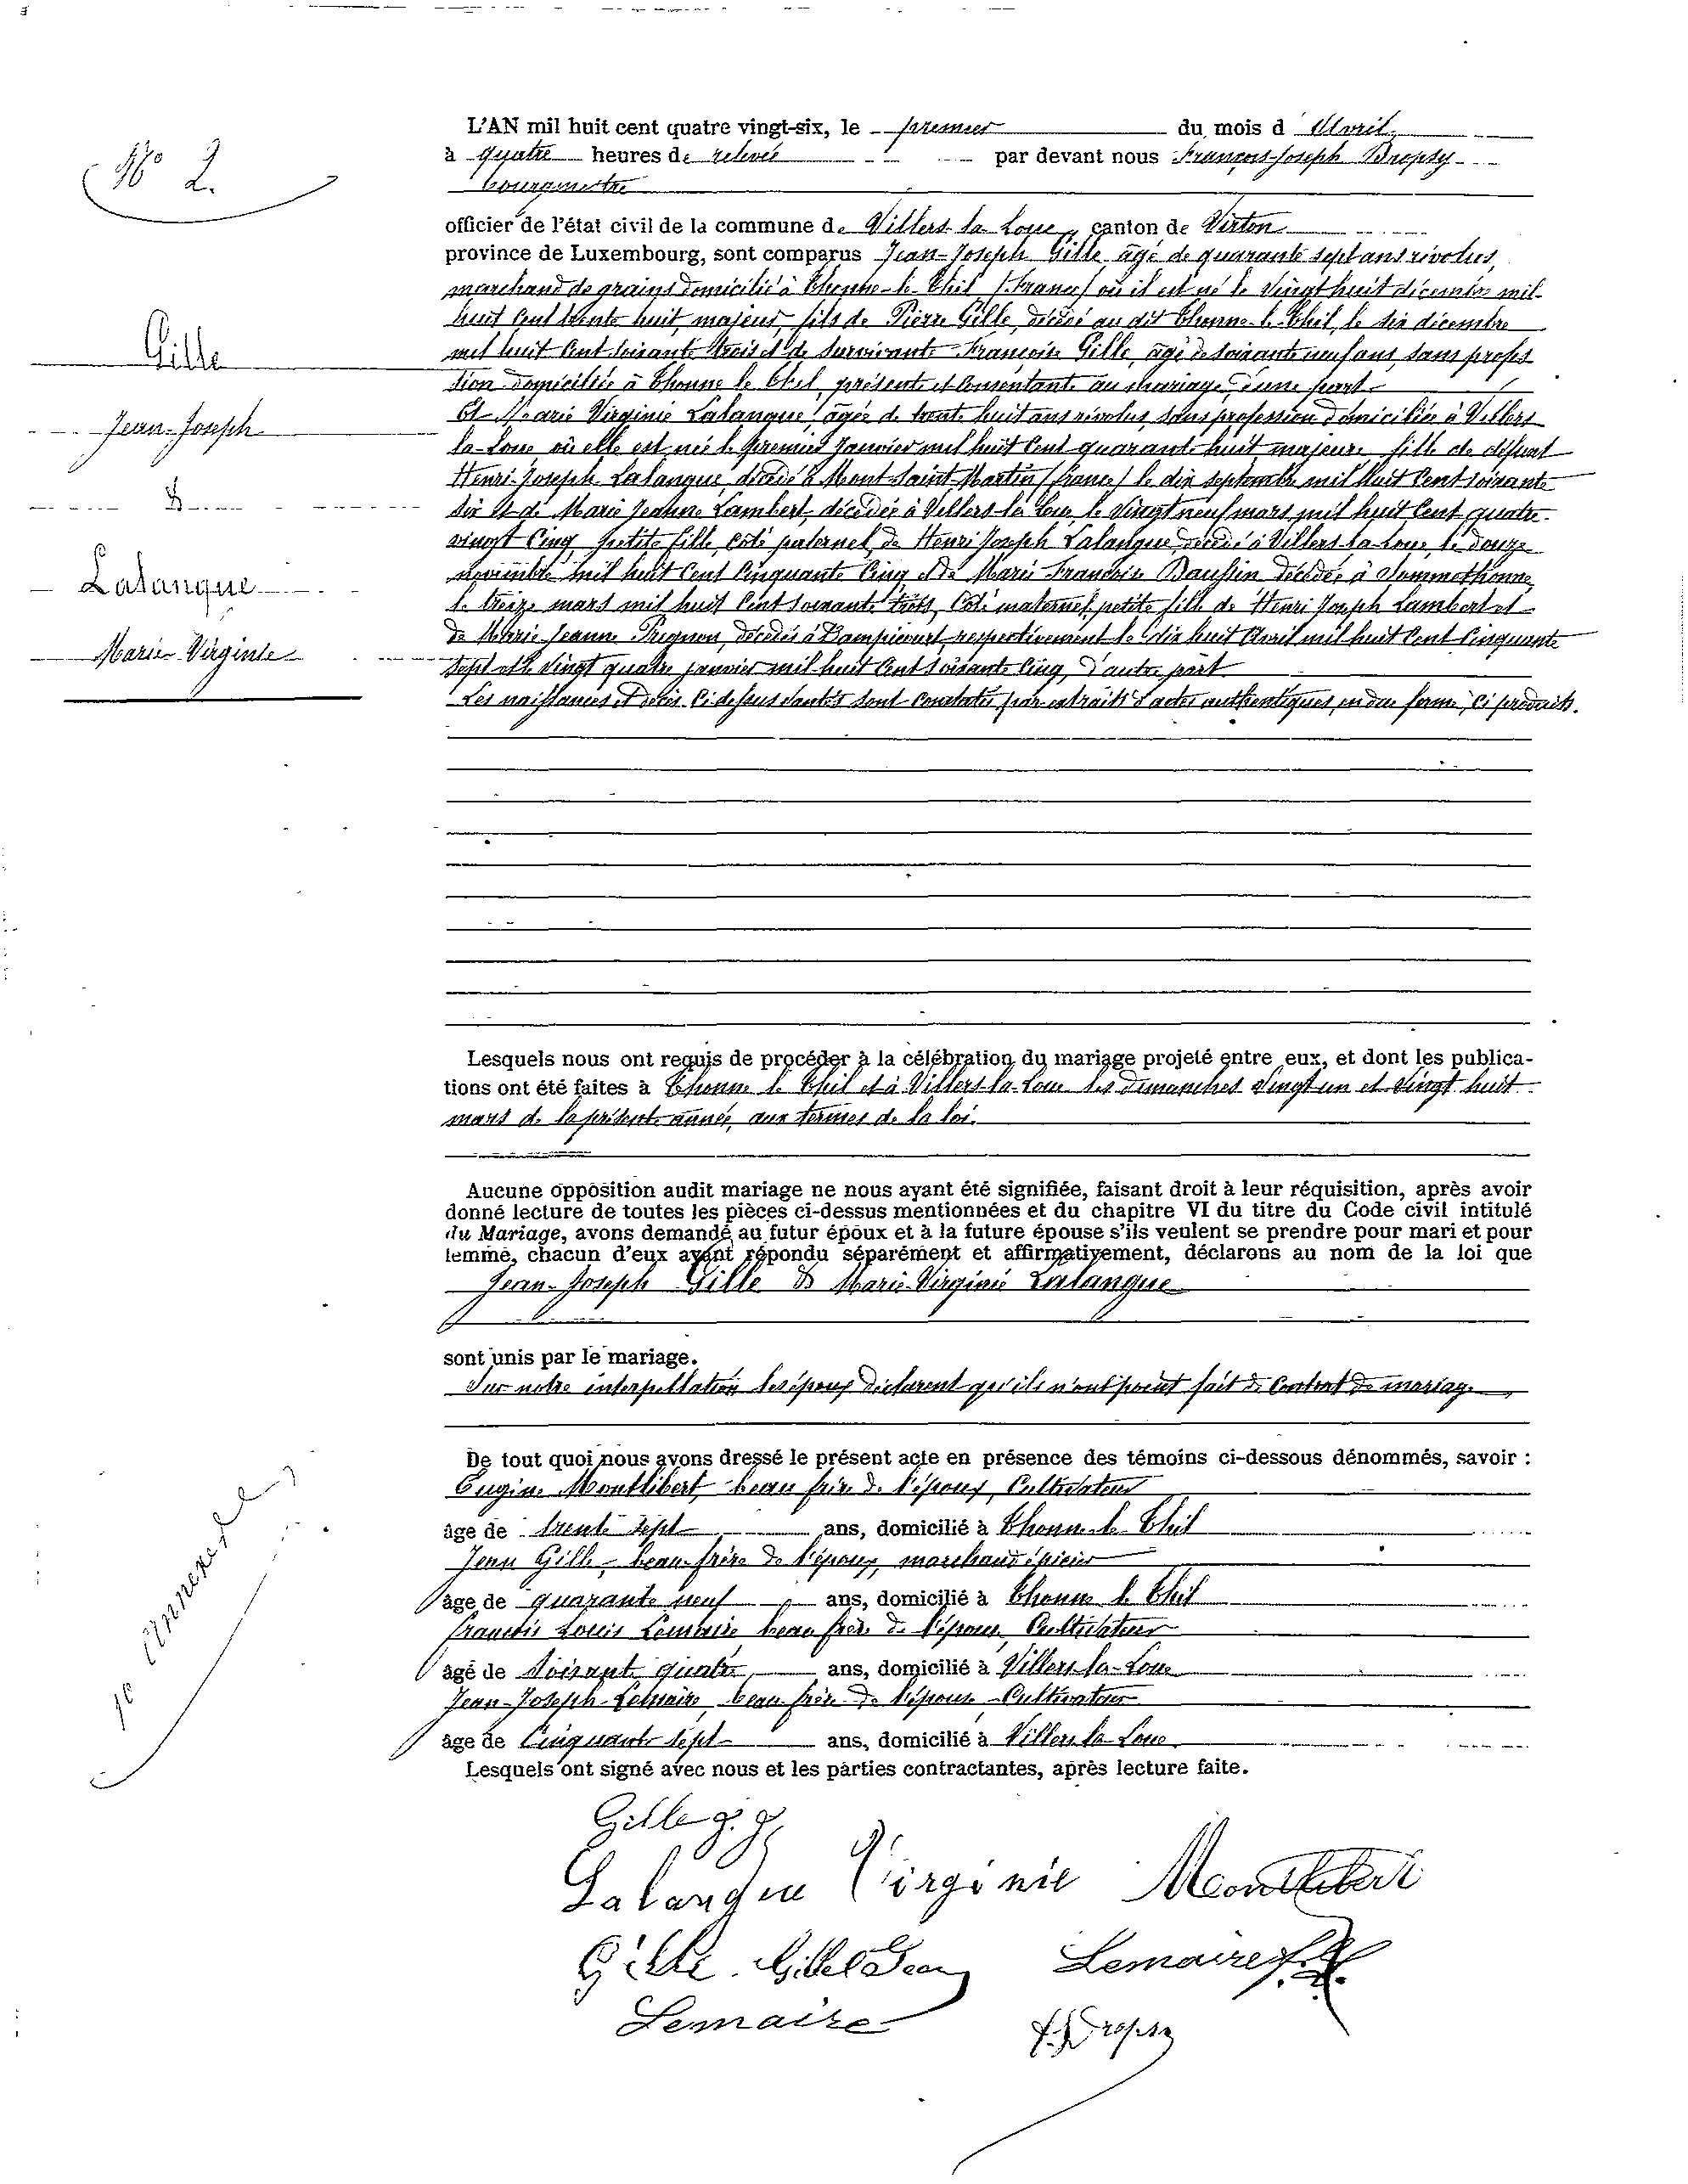 N° 2.
L'AN mil huit cent quatre vingt-six, le premier du mois d'Avril,
à quatre heures de relevée par devant nous François-Joseph Dropsy
bourgmestre
officier de l'état civil de la commune de Villers-la-Loue, canton de Virton
province de Luxembourg, sont comparus Jean-Joseph Gille âgé de quarante sept ans révolus,
marchand de grains domicilié à Thonne-le-Thil (France) où il est né le vingt huit décembre mil
huit cent trente huit, majeur, fils de Pierre Gille, décédé au dit Thonne-le-Thil, le six décembre
mil huit cent soixante trois et de survivante Françoise Gille, âgée de soixante neuf ans, sans profes
sion domiciliée à Thonne le Thil, présente et consentante au mariage, d'une part
Et Marie Virginie Lalangue, âgée de trente huit ans révolus, sans profession domiciliée à Villers
la-Loue où elle est née le premier Janvier mil huit cent quarante huit, majeure, fille de défunt
Henri-Joseph Lalangue, décédé à Mont-Saint-Martin (France) le dix septembre mil huit cent soixante
six et de Marie Jeanne Lambert, décédée à Villers-la-Loue, le vingt neuf mars mil huit cent quatre
vingt cinq, petite fille, côté paternel, de Henri Joseph Lalangue décédé à Villers-la-Loue, le douze
novembre mil huit cent cinquante cinq et de Marie Françoise décédée à Sommethonne,
le treize mars mil huit cent soixante trois, côté maternel, petite fille de Henri Joseph Lambert et
de Marie-Jeanne Prignon, décédés à Dampicourt, respectivement le dix huit Avril mil huit cent cinquante
sept et le vingt quatre janvier mil huit cent soixante cinq, d'autre part
Les naissances et décès ci-dessus sont constatés par extraits d'actes authentiques, en due forme, ci produits.
Gille
Jean-Joseph
&
Lalangue
Marie-Virginie
Lesquels nous ont requis de procéder à la célébration du mariage projeté entre eux, et dont les publica-
tions ont été faites à Thonne le Thil et à Villers-la-Loue les dimanches vingt un et vingt huit
mars de la présente année, aux termes de la loi.
Aucune opposition audit mariage ne nous ayant été signifiée, faisant droit à leur réquisition, après avoir
donné lecture de toutes les pièces ci-dessus mentionnées et du chapitre VI du titre du Code civil intitulé
du Mariage, avons demandé au futur époux et à la future épouse s'ils veulent se prendre pour mari et pour
femme, chacun d'eux ayant répondu séparément et affirmativement, déclarons au nom de la loi que
Jean-Joseph Gille & Marie-Virginie Lalangue
sont unis par le mariage.
Sur notre interpellation les époux déclarent qu'ils n'ont point fait de contrat de mariage
De tout quoi nous avons dressé le présent acte en présence des témoins ci-dessous dénommés, savoir :
Eugine Montlibert, beau frère de l'époux, Cultivateur
âgé de trente sept ans, domicilié à Thonne le Thil
Jean Gille, beau-frère de l'époux, marchand épicier
âgé de quarante neuf ans, domicilié à Thonne le Thil
François Louis Lemaire beau frère de l'épouse, Cultivateur
âgé de soixante quatre ans, domicilié à Villers-la-Loue
Jean-Joseph Lemaire, beau frère de l'épouse, Cultivateur
âgé de cinquante sept ans, domicilié à Villers la Loue
Lesquels ont signé avec nous et les parties contractantes, après lecture faite.
10 annexes
Gille J. J.
Lalangue Virginie Montlibert
Gille. Gille Jean Lemaire f. L.
Lemaire f. J Dropsy